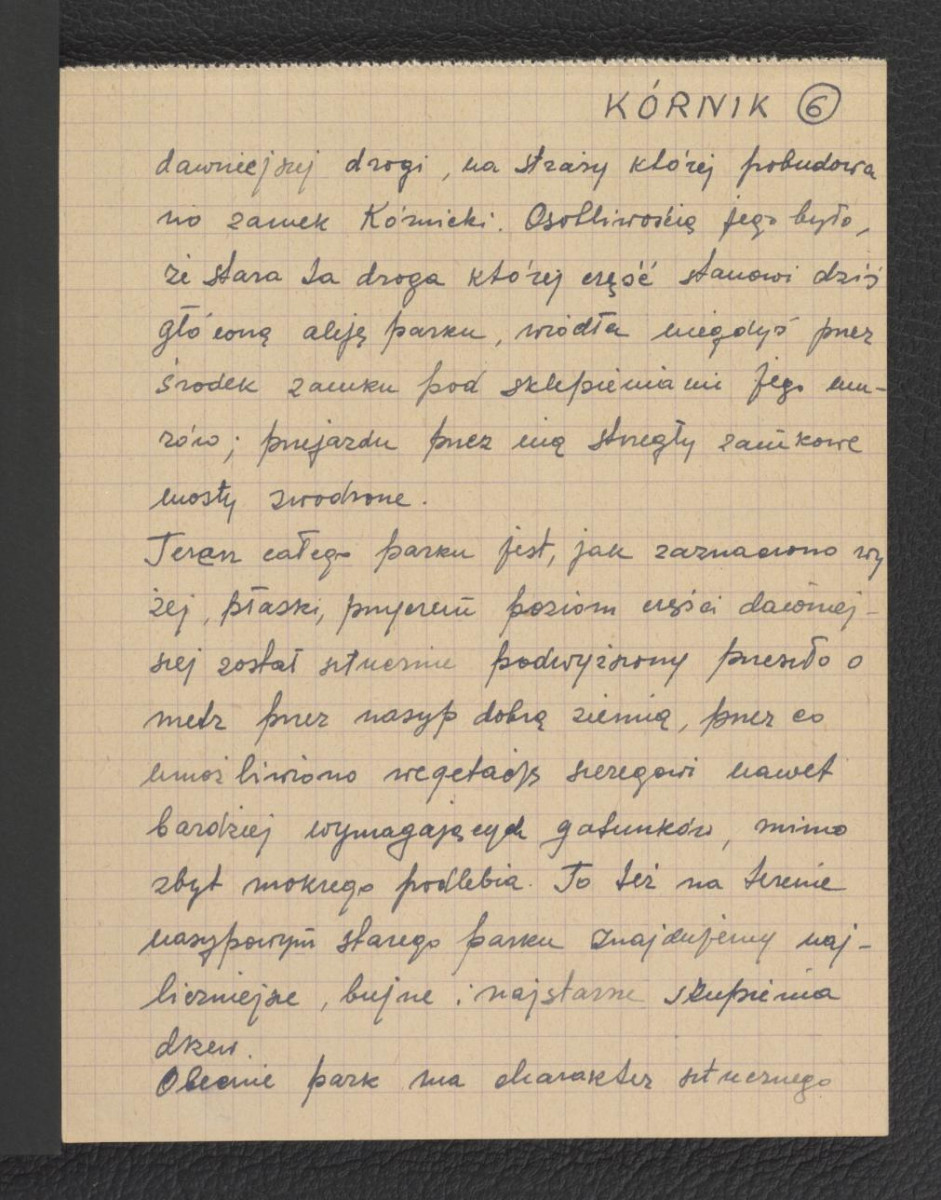 KÓRNIK 6
dawniejszej drogi, na straży której pobudowa
no zamek Kórnicki. Osobliwością jego było,
że stara ta droga której część stanowi dziś
główną aleję parku, wiodła niegdyś przez
środek zamku pod sklepieniami jego mu-
rów; przejazdu przez nią strzegły zamkowe
mosty zwodzone.
Teren całego parku jest, jak zaznaczono wy
żej, płaski, przyczem poziom części dawniej-
szej został sztucznie podwyższony przeszło o
metr przez nasyp dobrą ziemią, przez co
umożliwiono wegetację szeregowi nawet
bardziej wymagających gatunków, mimo
zbyt mokrego podłebia. To też na terenie
nasypowym starego parku znajdujemy naj-
liczniejsze, bujne i najstarsze skupienia
drzew.
Obecnie park ma charakter sztucznego